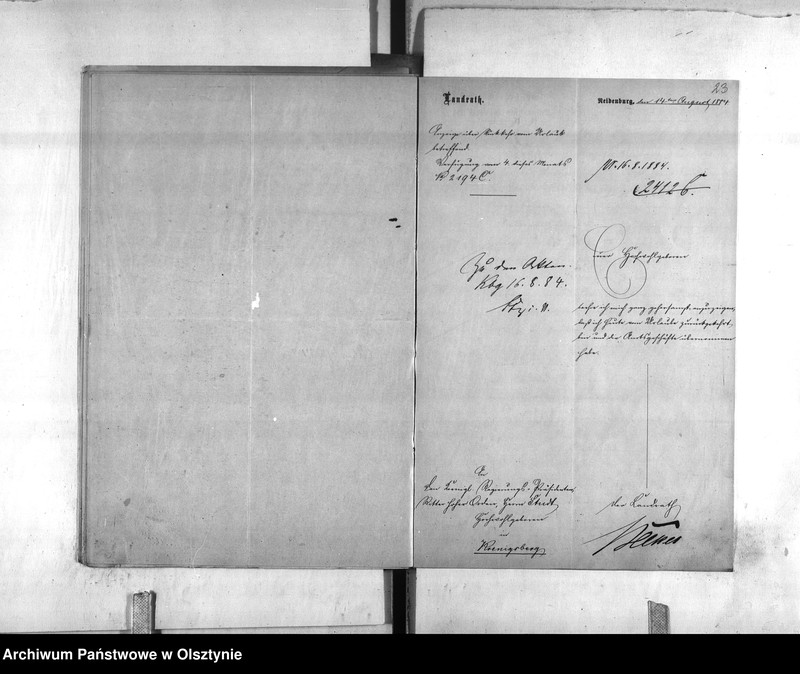 23
Landrath.
Neidenburg, den 14ten August 1884
Anzeige über Rückkehr vom Urlaub
betreffend.
Verfügung vom 4. dieses Monats
№ 2194 C.
16.8.1884.
2412 C.
Zu den Akten.
Kbg 16.8.84.
Euer Hochwohlgeboren
beehre ich mich ganz gehorsamst anzuzeigen,
daß ich heute vom Urlaube zurückgekehrt
bin und die Amtsgeschäfte übernommen
habe.
An
den Königl. Regierungs-Präsidenten,
Ritter hoher Orden, Herrn Studt
Hochwohlgeboren
in
Koenigsberg
Der Landrath
Archiwum Państwowe w Olsztynie